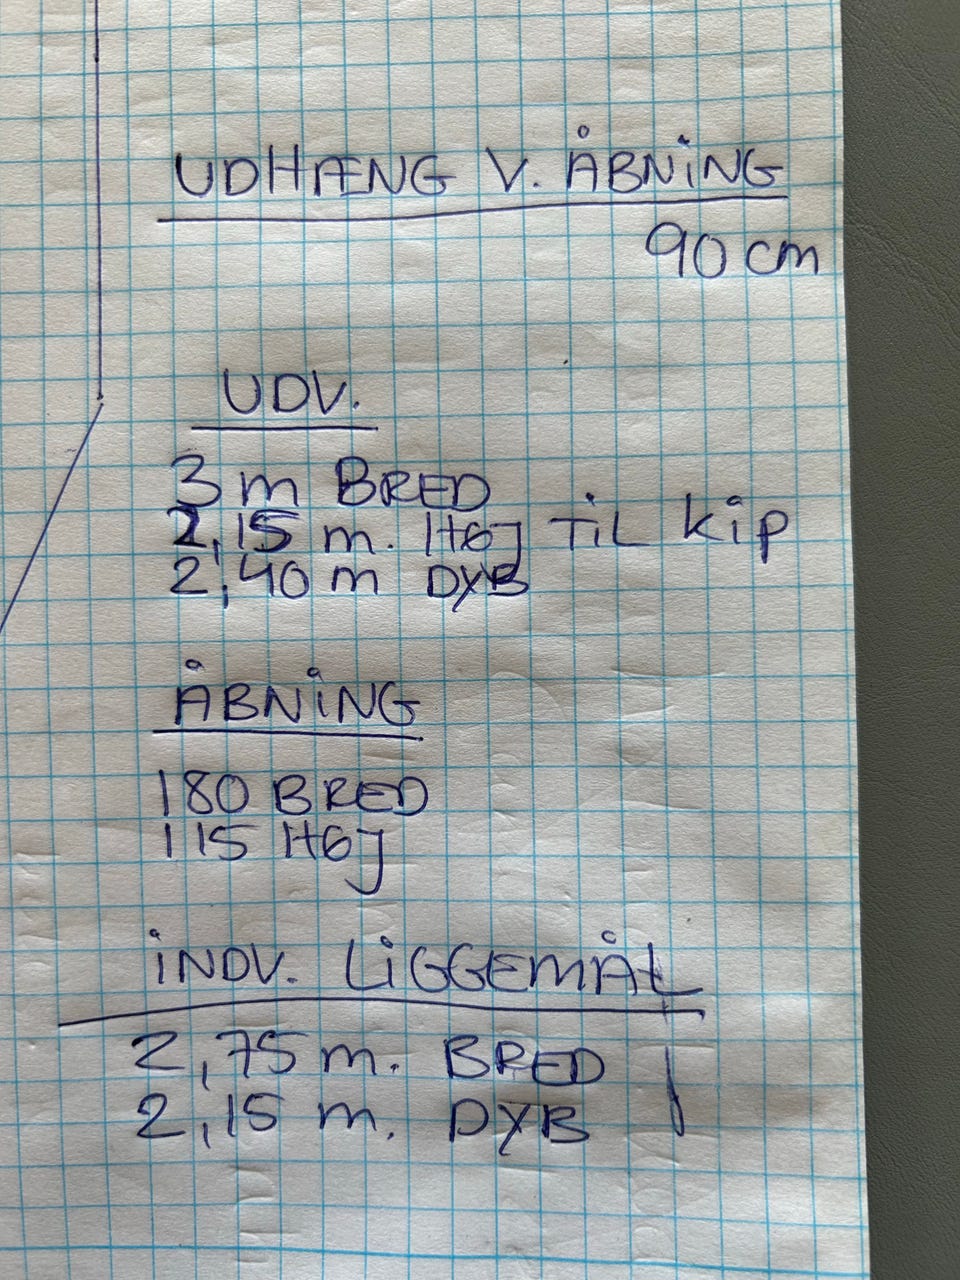 UDHÆNG V. ÅBNING
90 cm
UDV.
3 m BRED
2,15 m. HØJ TIL KIP
2,40 m DYB
ÅBNING
180 BRED
115 HØJ
INDV. LIGGEMÅL
2,75 m. BRED
2,15 m. DYB